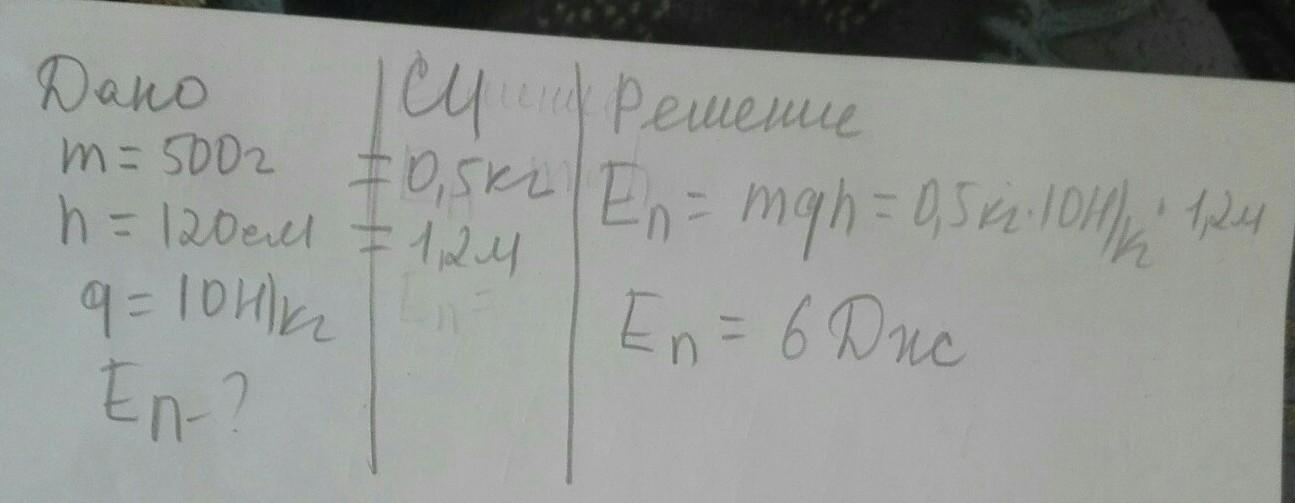 Дано
m = 500г
h = 120см
g = 10Н/кг
Eп-?
СИ
= 0,5кг
= 1,2м
Eп =
Решение
Eп = mgh = 0,5кг·10Н/к · 1,2м
Eп = 6 Дж